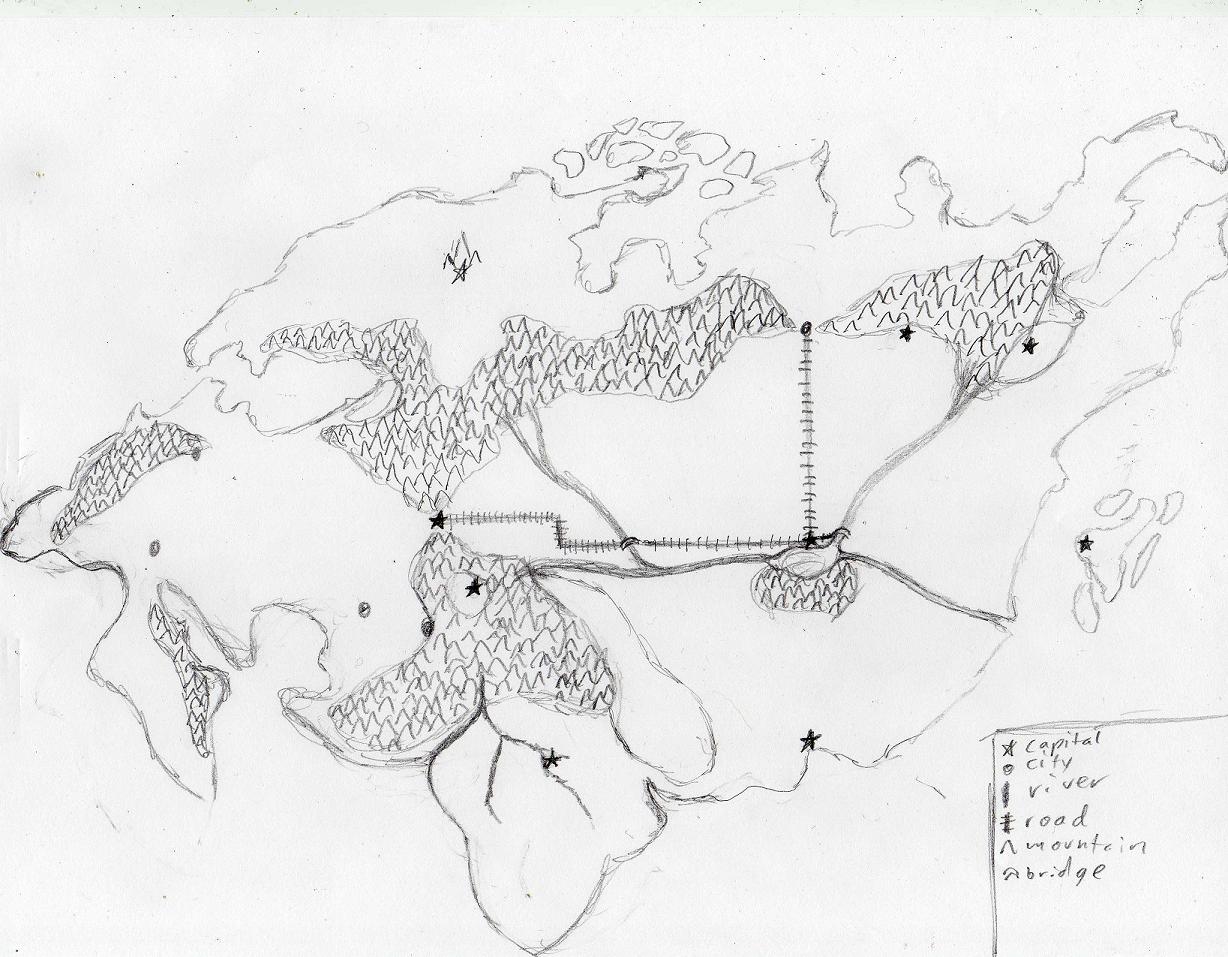 capital
city
river
road
mountain
bridge